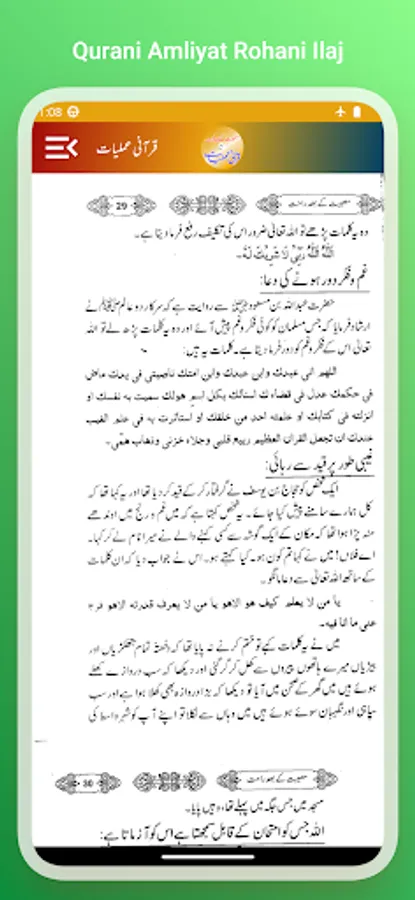 Qurani Amliyat Rohani Ilaj
1:08
قرآنی عملیات
29
مصیبت کے بعد راحت
وہ یہ کلمات پڑھے تو اللہ تعالیٰ ضرور اس کی تکلیف رفع فرما دیتا ہے۔
اَللّٰهُ اَللّٰهُ رَبِّیْ لَا شَرِیْكَ لَهٗ۔
غم و فکر دور ہونے کی دعا:
حضرت عبداللہ بن مسعود سے روایت ہے کہ سرکار دو عالم ﷺ نے
ارشاد فرمایا کہ جس مسلمان کو کوئی فکر و غم پیش آئے اور وہ یہ کلمات پڑھ لے تو اللہ
تعالیٰ اس کے فکر و غم کو دور فرما دیتا ہے۔ کلمات یہ ہیں:
اللهم انی عبدك وابن عبدك وابن امتك ناصیتی فی یدك ماض
فی حکمك عدل فی قضاء ك اسئالك بکل اسم هولك سمیت به نفسك او
انزلته فی کتابك او علمته احد من خلقك او استأثرت به فی علم الغیب
عندك ان تجعل القران العظیم ربیع قلبی وجلاء حزنی وذهاب همی۔
غیبی طور پر قید سے رہائی:
ایک شخص کو حجاج بن یوسف نے گرفتار کر کے قید کر دیا تھا اور یہ کہا تھا کہ
کل ہمارے سامنے پیش کیا جائے۔ یہ شخص کہتا ہے کہ میں غم و رنج میں اوندھے
منہ پڑا ہوا تھا کہ مکان کے ایک گوشہ سے کسی کہنے والے نے میرا نام لے کر کہا۔
اے فلاں! میں نے کہا تم کون ہو۔ کیا کہتے ہو۔ اس نے جواب دیا کہ ان کلمات
کے ساتھ اللہ تعالیٰ سے دعا مانگو۔
یا من لا یعلم کیف هو الاهو یا من لا یعرف قدرته الاهو فرج
عنی ما انا فیه۔
میں نے یہ کلمات کہے تو ختم کرنے نہ پایا تھا کہ دفعتہ تمام ہتھکڑیاں اور
بیڑیاں میرے ہاتھوں پیروں سے کھل کر گر گئی اور دیکھا کہ سب دروازے کھلے
ہوئے ہیں میں گھر کے صحن میں آیا تو دیکھا کہ بڑا دروازہ بھی کھلا ہوا ہے اور سب
سپاہی اور نگہبان سوئے ہوئے ہیں میں وہاں سے نکلا تو اپنے آپ کو شہر واسط کی
30
مصیبت کے بعد راحت
مسجد میں جس جگہ میں پہلے تھا، وہیں پایا۔
اللہ جس کو امتحان کے قابل سمجھتا ہے اس کو آزماتا ہے: